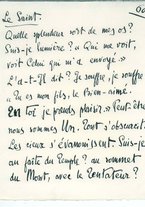 Le Saint.
Quelle splendeur sort de mes os?
Suis-je lumière? « Qui me voit,
voit Celui qui m'a envoyé »
L'a-t-Il dit? Je souffre, je souffre
« Tu es mon fils, le Bien-aimé.
En Toi je prends plaisir. » Peut-être
nous sommes Un. Tout s'obscurcit.
Les cieux s'évanouissent. Suis-je
au faîte du Temple? au sommet
du Mont, avec le Tentateur?